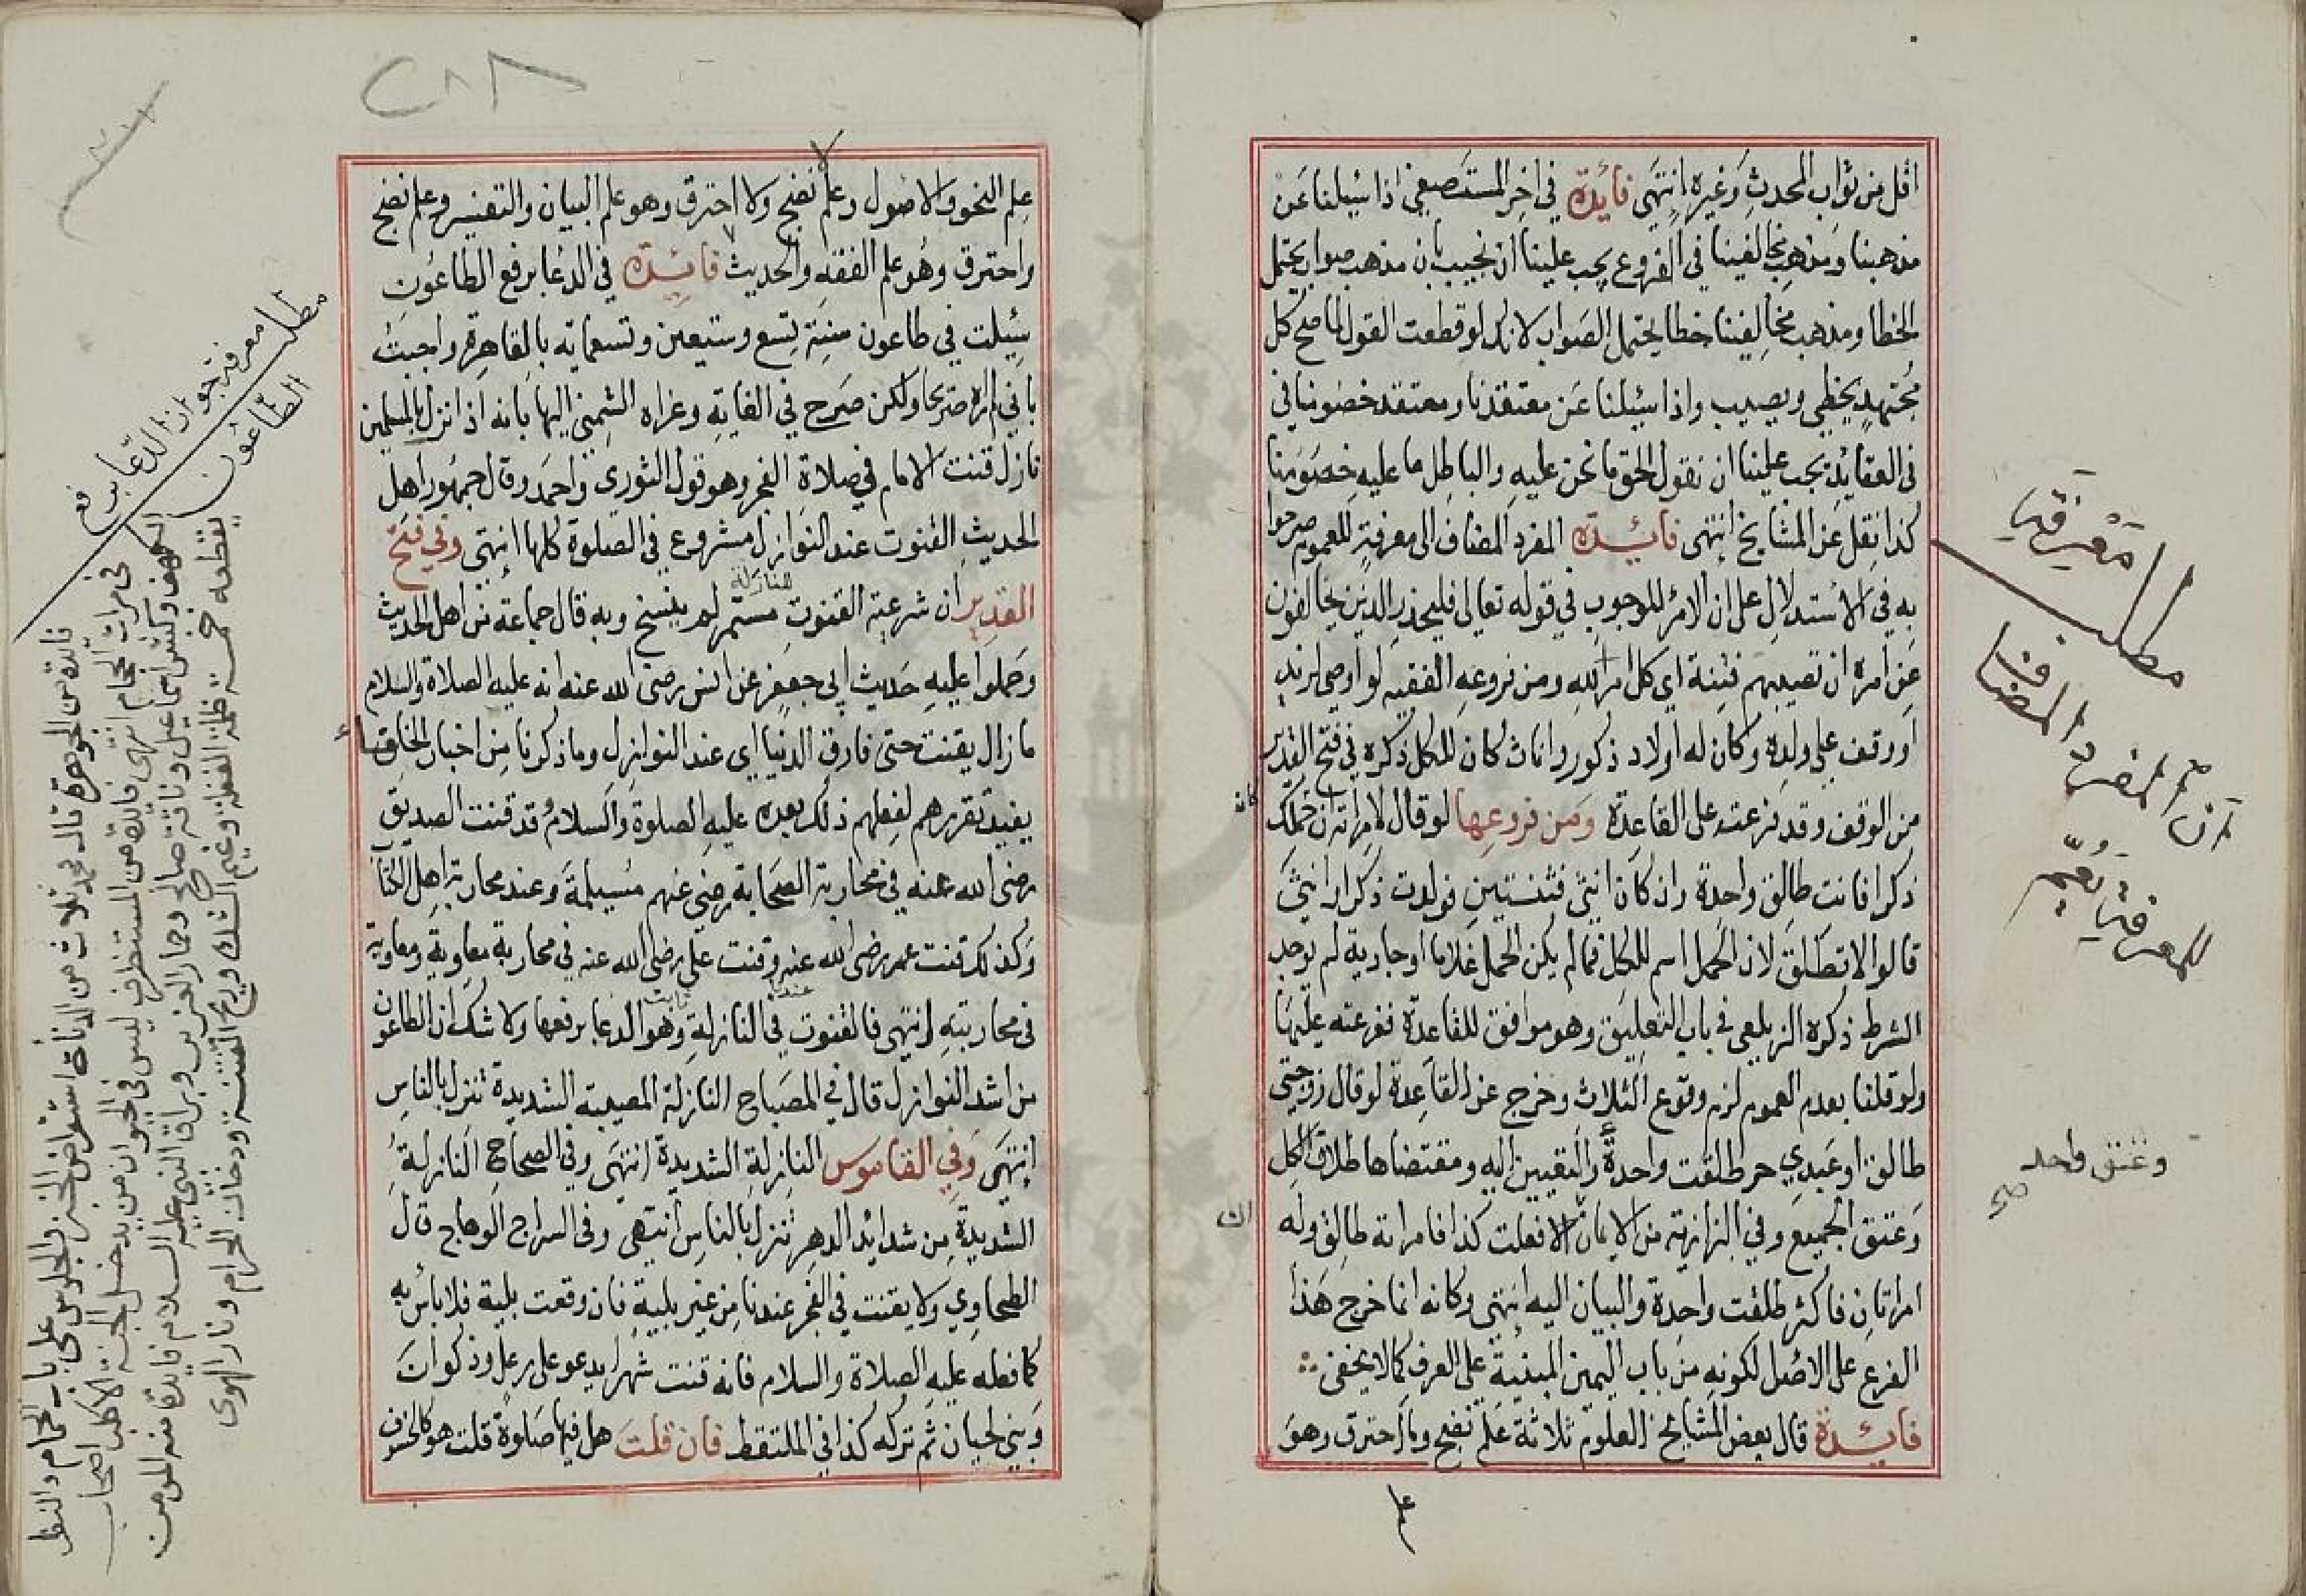 اقل من ثواب المحدث وغيره انتهى فائدة في اخر المستصفى اذا سئلنا عن
مذهبنا ومذهب مخالفينا في الفروع يجب علينا ان نجيب بان مذهبنا صواب يحتمل
الخطا ومذهب مخالفينا خطا يحتمل الصواب لانك لو قطعت القول لما صح كل
مجتهد يخطي ويصيب واذا سئلنا عن معتقدنا ومعتقد خصومنا في
في العقايد يجب علينا ان نقول الحق ما نحن عليه والباطل ما عليه خصومنا
كذا نقل عن المشايخ انتهى فائدة المفرد المضاف الى معرفة للعموم صرحوا
به في الاستدلال على ان الامر للوجوب في قوله تعالى فليحذر الذين يخالفون
عن امره ان تصيبهم فتنة اي كل امر لله ومن فروعه الفقهيه لو اوصى لولد زيد
او وقف على ولده وكان له اولاد ذكور واناث كان للكل ذكره في فتح القدير
من الوقف وقد فرعته على القاعدة ومن فروعها لو قال لامراته ان حملك
كان
ذكرا فانت طالق واحدة وان كان انثى فثنتين فولدت ذكرا وانثى
قالوا لا تطلق لان الحمل اسم للكل فما لم يكن الحمل غلاما او جارية لم يوجد
الشرط ذكره الزيلعي في باب التعليق وهو موافق للقاعدة ففرعته عليها
ولو قلنا بعدم العموم لزم وقوع الثلاث وخرج عن القاعدة لو قال زوجتي
طالق او عبدي حر طلقت واحدة والتعيين اليه ومقتضاها طلاق الكل
وعتق الجميع وفي البزازية من الايمان ان فعلت كذا فامراته طالق وله
امراتان فاكثر طلقت واحدة والبيان اليه انتهى وكانه انما خرج هذا
الفرع على الاصل لكونه من باب اليمين المبنية على العرف كما لا يخفى
فائدة قال بعض المشايخ العلوم ثلاثة علم نضج وما احترق وهو
علم
مطلب معرفة
ان المفرد المضاف
للمعرفة يعم
وعتق واحد
صح
٢٨٨
علم النحو والاصول وعلم لا نضج ولا احترق وهو علم البيان والتفسير وعلم نضج
واحترق وهو علم الفقه والحديث فائدة في الدعا برفع الطاعون
سئلت في طاعون سنة تسع وستين وتسعماية بالقاهرة واجبت
باني لم اره صريحا ولكن صرح في الغاية وعزاه الشمني اليها بانه اذا نزل بالمسلمين
نازل قنت الامام في صلاة الفجر وهو قول الثوري واحمد وقال جمهور اهل
الحديث القنوت عند النوازل مشروع في الصلوة كلها انتهى وفي فتح
القدير ان شرعية القنوت للنازلة مستمر لم ينسخ وبه قال جماعة من اهل الحديث
وحملوا عليه حديث ابي جعفر عن انس رضى الله عنه انه عليه الصلاة والسلام
ما زال يقنت حتى فارق الدنيا اي عند النوازل وما ذكرنا من اخبار الخلفاء
يفيد تقررهم لفعلهم ذلك بعده عليه الصلوة والسلام وقد قنت الصديق
رضى الله عنه في محاربة الصحابة رضى عنهم مسيلمة وعند محاربة اهل الكتاب
وكذلك قنت عمر رضى الله عنه وقنت علي رضى الله عنه في محاربة معاوية ومعاوية
في محاربته انتهى فالقنوت عندنا في النازلة ثابت وهو الدعا برفعها ولا شك ان الطاعون
من اشد النوازل قال في المصباح النازلة المصيبة الشديدة تنزل بالناس
انتهى وفي القاموس النازلة الشديدة انتهى وفي الصحاح النازلة
الشديدة من شدائد الدهر تنزل بالناس انتهى وفي السراج الوهاج قال
الطحاوي ولا يقنت في الفجر عندنا من غير بلية فان وقعت بلية فلا باس به
كما فعله عليه الصلاة والسلام فانه قنت شهرا يدعو على رعل وذكوان
وبني لحيان ثم تركه كذا في الملتقط فان قلت هل فيها صلوة قلت هو كالخسوف
مطلب معرفة جواز الدعا برفع
الطاعون
فايدة من الجوهرة قال محمد ثلاث من الدناءة استقراض الخبز والجلوس على باب الحمام والنظر
في مراة الحجام انتهى فايدة من المستظرف ليس في الحيوان من يدخل الجنة الا كلب اصحاب
الكهف وكبش اسماعيل وناقة صالح وحمار العزير وبراق النبي عليه السلام فايدة منه المومن
يقطعه خمسة ظلمة الغفلة وغيم الشك وريح الفتنة ودخان الحرام ونار الهوى